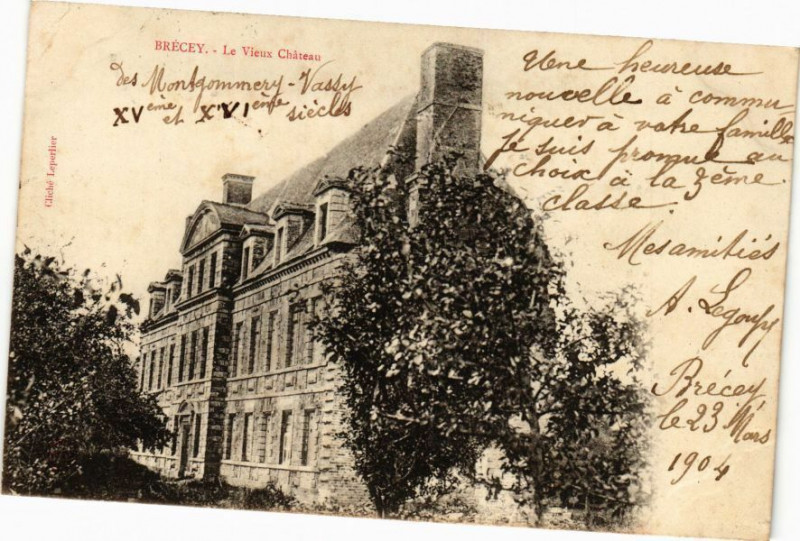 BRÉCEY. - Le Vieux Château
des Montgommery - Vassy
XVème et XVIème siècles
Cliché Leperlier
Une heureuse
nouvelle à commu
niquer à votre famille
je suis promue au
choix à la 3ème
classe.
Mes amitiés
A. Legoupy
Brécey
le 23 Mars
1904